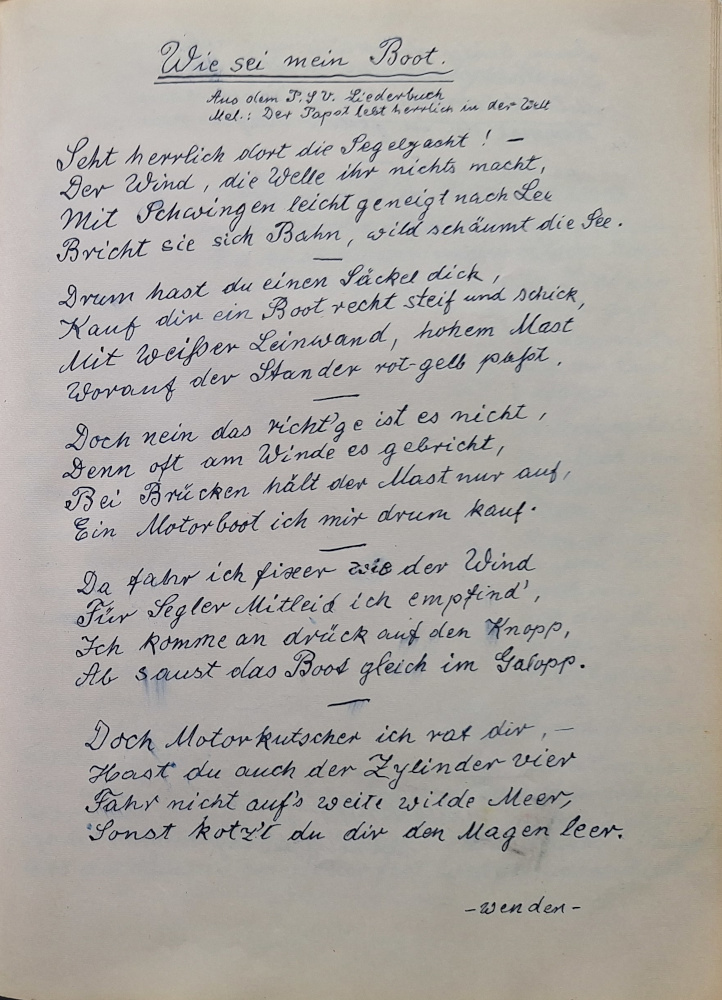 Wie sei mein Boot.
Aus dem P.S.V. Liederbuch
Mel.: Der Papst lebt herrlich in der Welt
Seht herrlich dort die Segelyacht! –
Der Wind, die Welle ihr nichts macht,
Mit Schwingen leicht geneigt nach Lee
Bricht sie sich Bahn, wild schäumt die See.
Drum hast du einen Säckel dick,
Kauf dir ein Boot recht steif und schick,
Mit weißer Leinwand, hohem Mast
Worauf der Stander rot-gelb paßt.
Doch nein das richt'ge ist es nicht,
Denn oft am Winde es gebricht,
Bei Brücken hält der Mast nur auf,
Ein Motorboot ich mir drum kauf.
Da fahr ich fixer wie der Wind
Für Segler Mitleid ich empfind',
Ich komme an drück auf den Knopp,
Ab saust das Boot gleich im Galopp.
Doch Motorkutscher ich rat dir, –
Hast du auch der Zylinder vier
Fahr nicht auf's weite wilde Meer,
Sonst kotz't du dir den Magen leer.
–wenden–